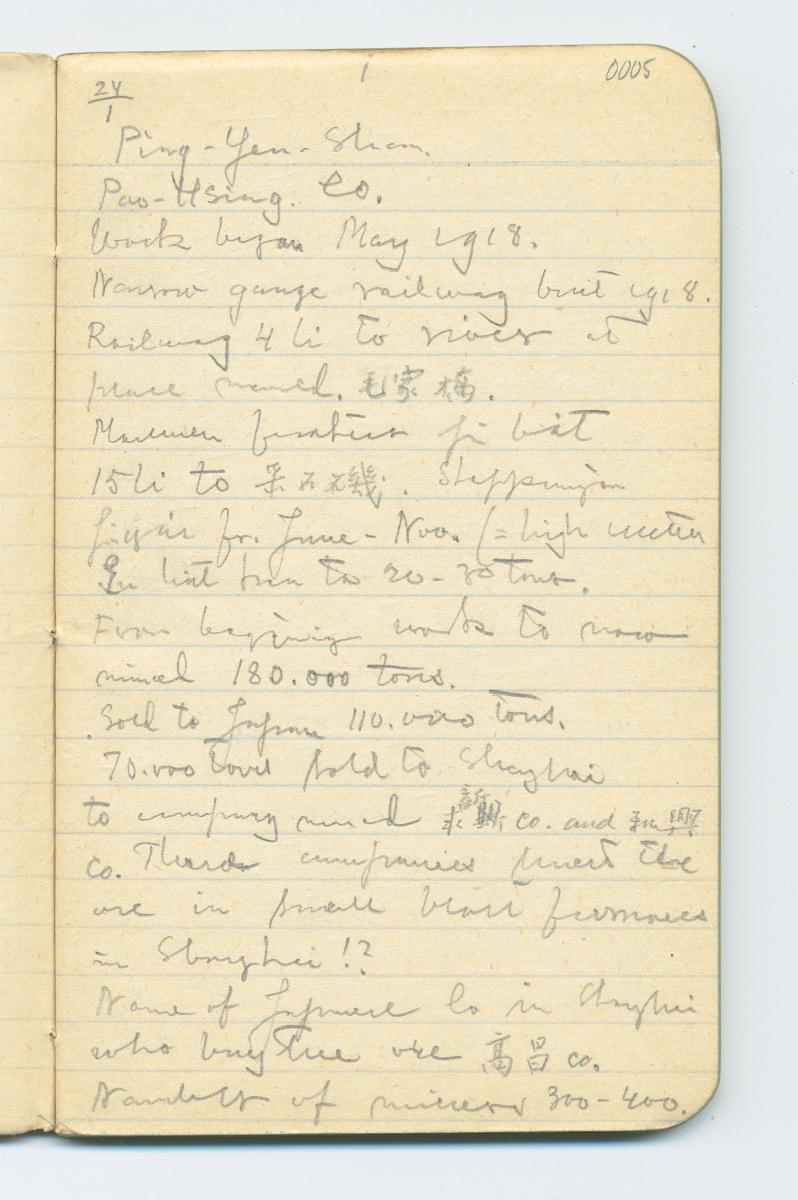 1 0005
24/1
Ping-Yen-Shan.
Pao-Hsing. Co.
Work began May 1918.
Narrow gauge railway buit 1918.
Railway 4 li to river at
place named. 毛家橋.
15 li to 采石磯. Shipping
for June - Nov. (= high
to 20-30 tons.
From begining work to now
mined 180.000 tons.
Sold to Japan 110.000 tons.
70.000 tons sold to Shaghai
to company named 求新 co. and 和興
co. These companies smelt the
ore in small blast furnaces
in Shaghai !?
Name of Japanese Co in Shaghai
who buy the ore 高昌 co.
of miners 300-400.